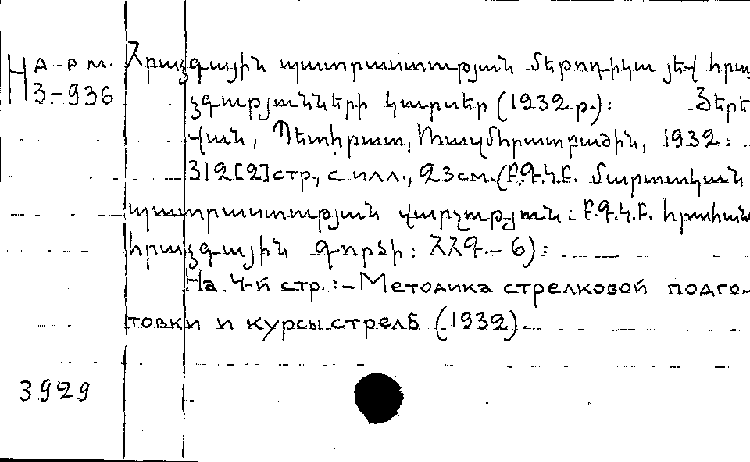 Н д-рм. Հրաձգային պատրաստության մեթոդիկա յեվ հրա-
3-936 ձգությունների կուրսեր (1932թ.): Յերե-
վան, Պետհրատ, Ռազմհրատբաժին, 1932:
312[2]стр., с илл., 23см. (Բ.Գ.Կ.Բ. Մարտական
պատրաստության վարչություն: Բ.Գ.Կ.Բ. հրահանգ
հրաձգային գործի: ՀՀԳ-6):
На 4-й стр.:- Методика стрелковой подго-
товки и курсы стрелб (1932).
3929